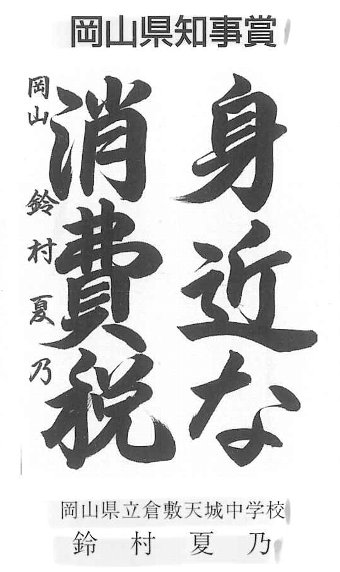 岡山県知事賞
身近な
消費税
岡山 鈴村夏乃
岡山県立倉敷天城中学校
鈴村夏乃